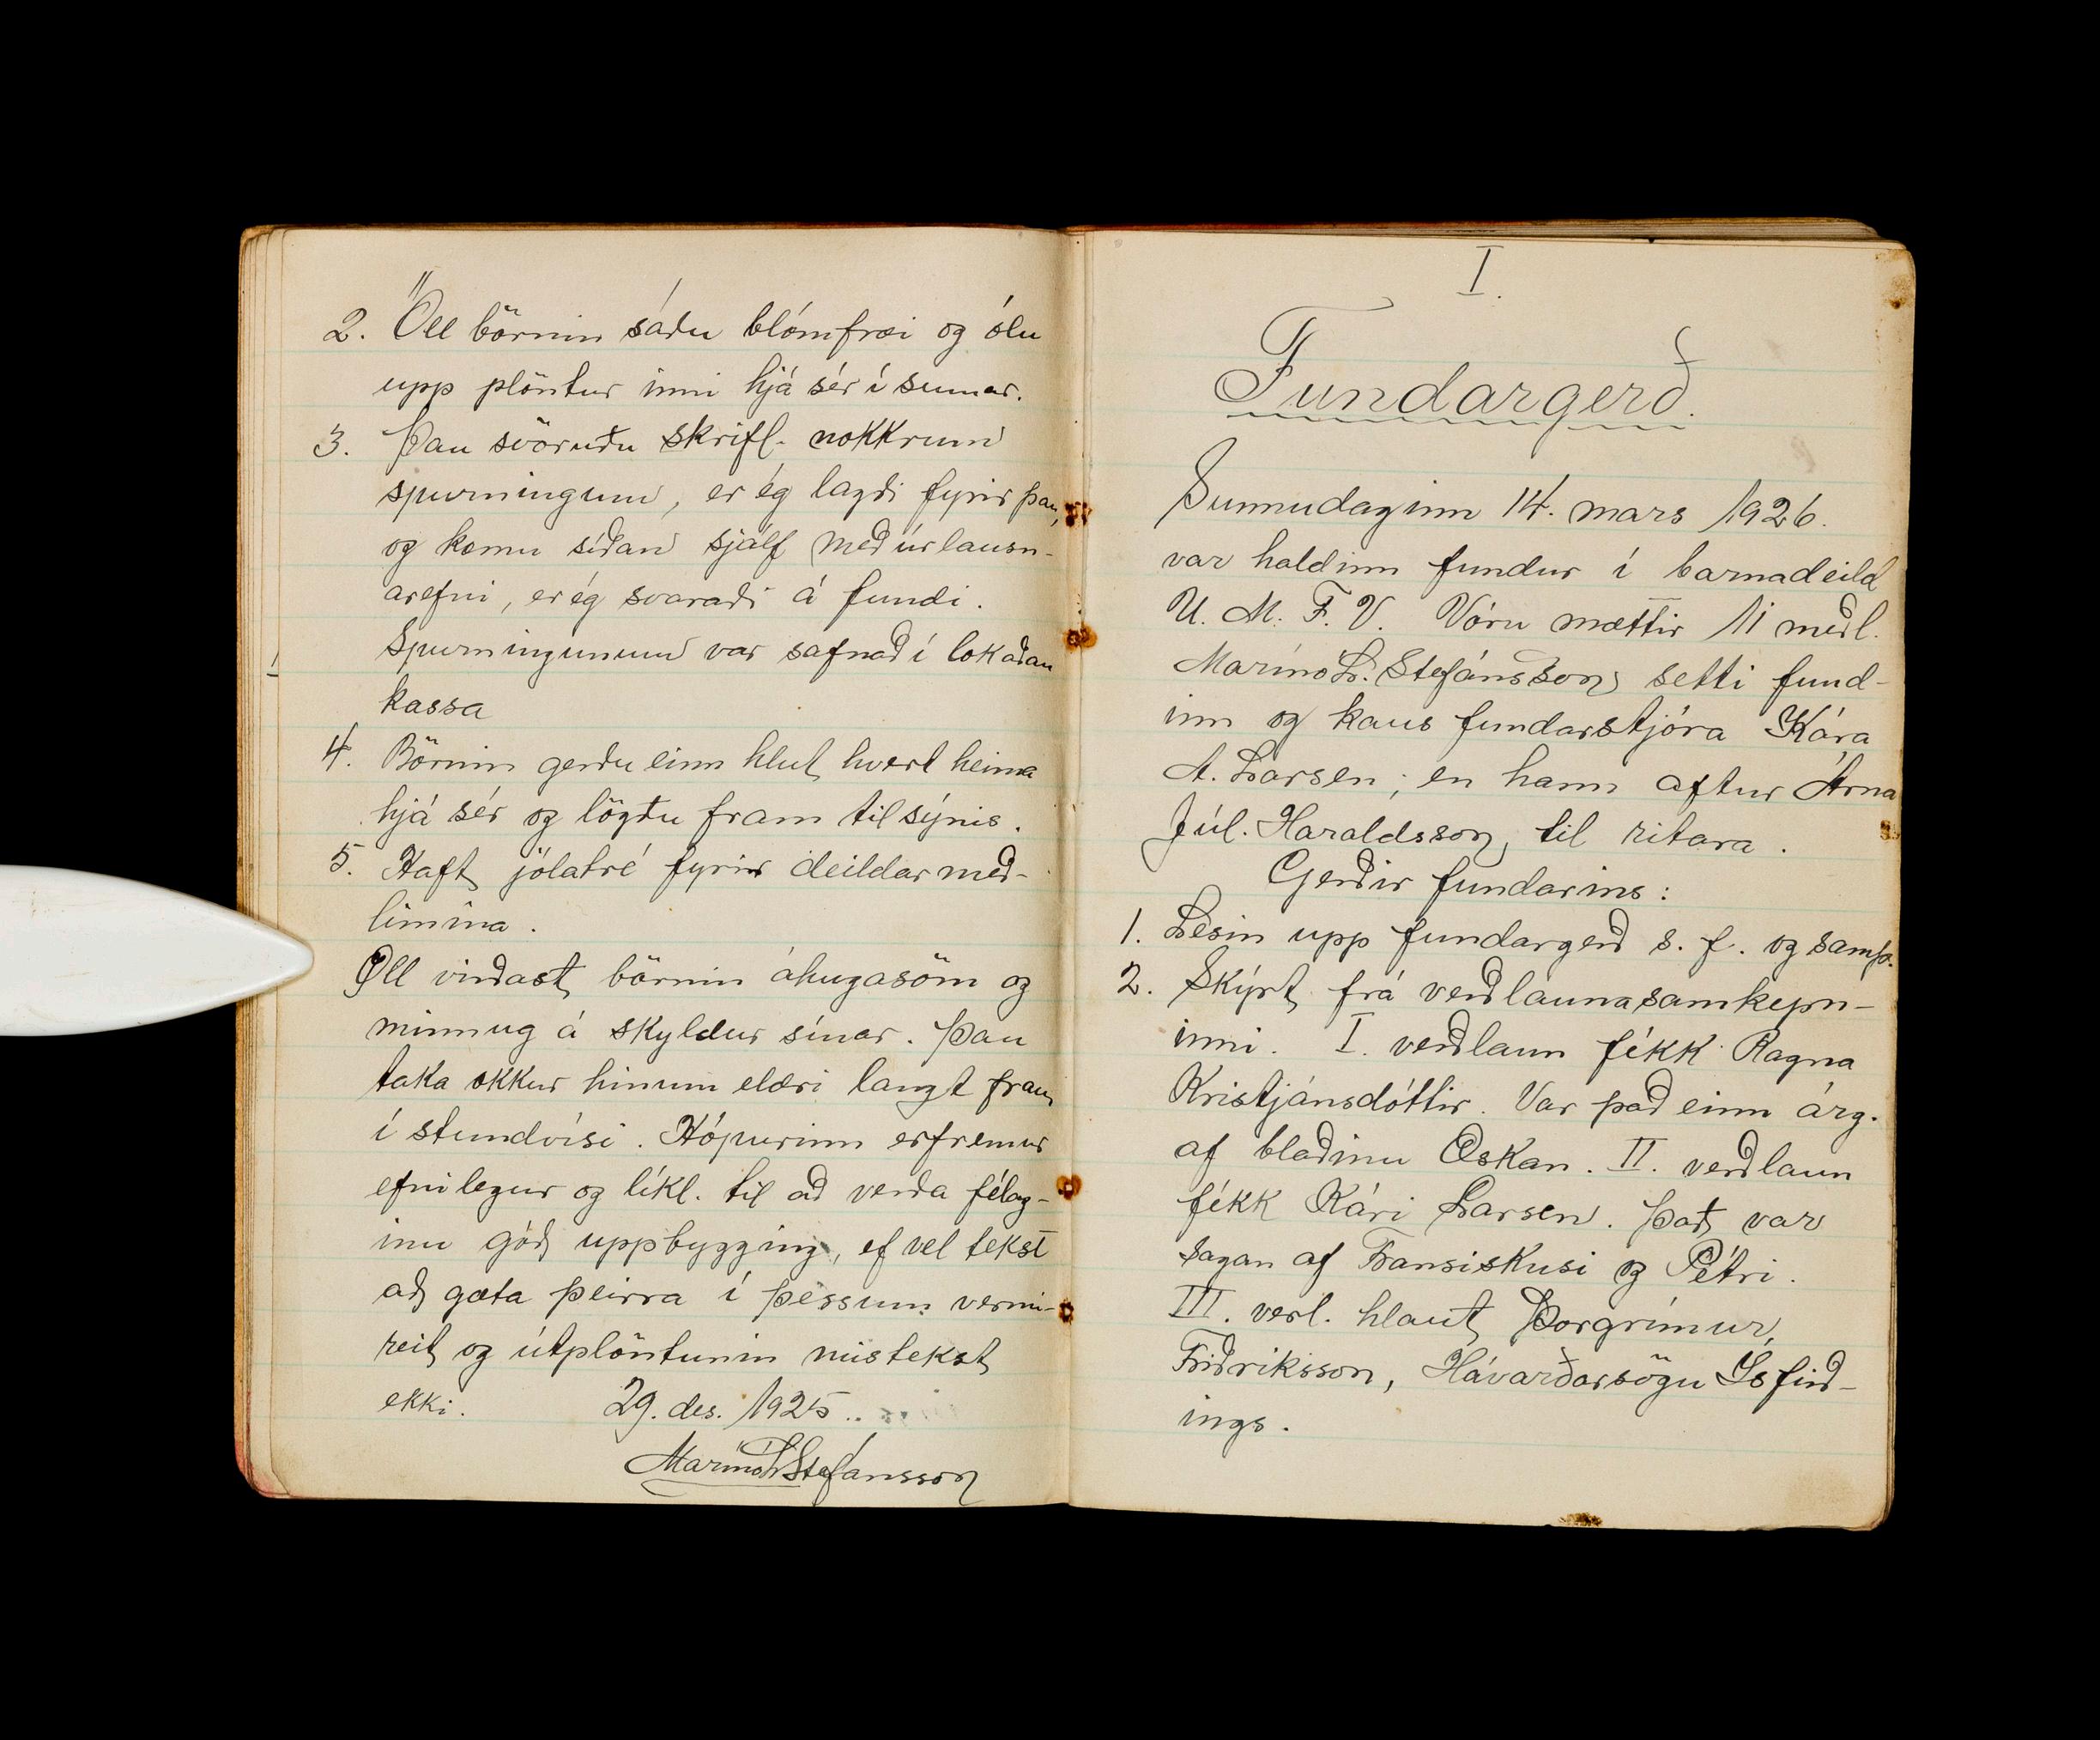 2. Öll börnin sáðu blómfræi og ólu
upp plöntur inni hjá sér í sumar.
3. Þau svöruðu skrifl. nokkrum
spurningum, er ég lagði fyrir þau,
og komu síðan sjálf með úrlausn-
arefni, er ég svaraði á fundi.
Spurningunum var safnað í lokaðan
kassa
4. Börnin gerðu einn hlut hvert heima
hjá sér og lögðu fram til sýnis.
5. Haft jólatré fyrir deildarmeð-
limina.
Öll virðast börnin áhugasöm og
minnug á skyldur sínar. Þau
taka okkur hinum eldri langt fram
í stundvísi. Hópurinn er fremur
efnilegur og líkl. til að verða félag-
inu góð uppbygging, ef vel tekst
að gæta þeirra í þessum vermi-
reit og útplöntunin mistekst
ekki. 29. des. 1925.
Marínó L. Stefánsson
I.
Fundargerð.
Sunnudaginn 14. mars 1926.
var haldinn fundur í barnadeild
U. M. F. V. Vóru mættir 11 með l.
Marínó L. Stefánsson setti fund-
inn og kaus fundarstjóra Kára
A. Larsen; en hann aftur Árna
Júl. Haraldsson, til ritara.
Gerðir fundarins:
1. Lesin upp fundargerð s. f. og samþ.
2. Skýrt frá verðlaunasamkepn-
inni. I. verðlaun fékk Ragna
Kristjánsdóttir. Var það einn árg.
af blaðinu Æskan. II. verðlaun
fékk Kári Larsen. Það var
sagan af Fransiskusi og Pétri.
III. verl. hlaut Þorgrímur,
Friðriksson, Hávarðarsögu Ísfirð-
ings.